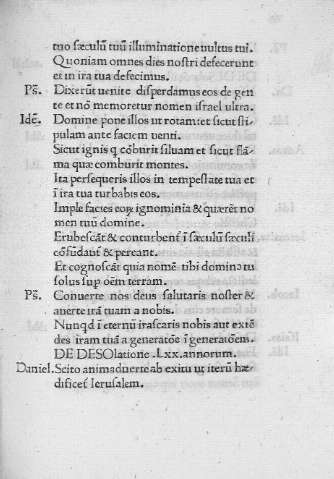 tuo sæculũ tuũ illuminatione uultus tui.
Quoniam omnes dies nostri defecerunt
et in ira tua defecimus.
Ps̃. Dixerũt uenite disperdamus eos de gen
te et nõ memoretur nomen israel ultra.
Idẽ. Domine pone illos ut rotam: et sicut sti
pulam ante faciem uenti.
Sicut ignis q cõburit siluam et sicut flã
ma quæ comburit montes.
Ita persequeris illos in tempestate tua et
ĩ ira tua turbabis eos.
Imple facies eoꝝ ignominia & quærẽt no
men tuũ domine.
Erubescãt & conturbenť ĩ sæculũ sæculi
cõfũdanť & pereant.
Et cognoscãt quia nomẽ tibi domina tu
solus sup oẽm terram.
Ps̃. Conuerte nos deus salutaris noster &
auerte irã tuam a nobis.
Nunqd ĩ eternũ irascaris nobis aut extẽ
des iram tuã a generatõe ĩ generatõem.
DE DESOlatione .Lxx. annorum.
Daniel. Scito animaduerte ab exitu ut iterũ hæ
dificeť Ierusalem.